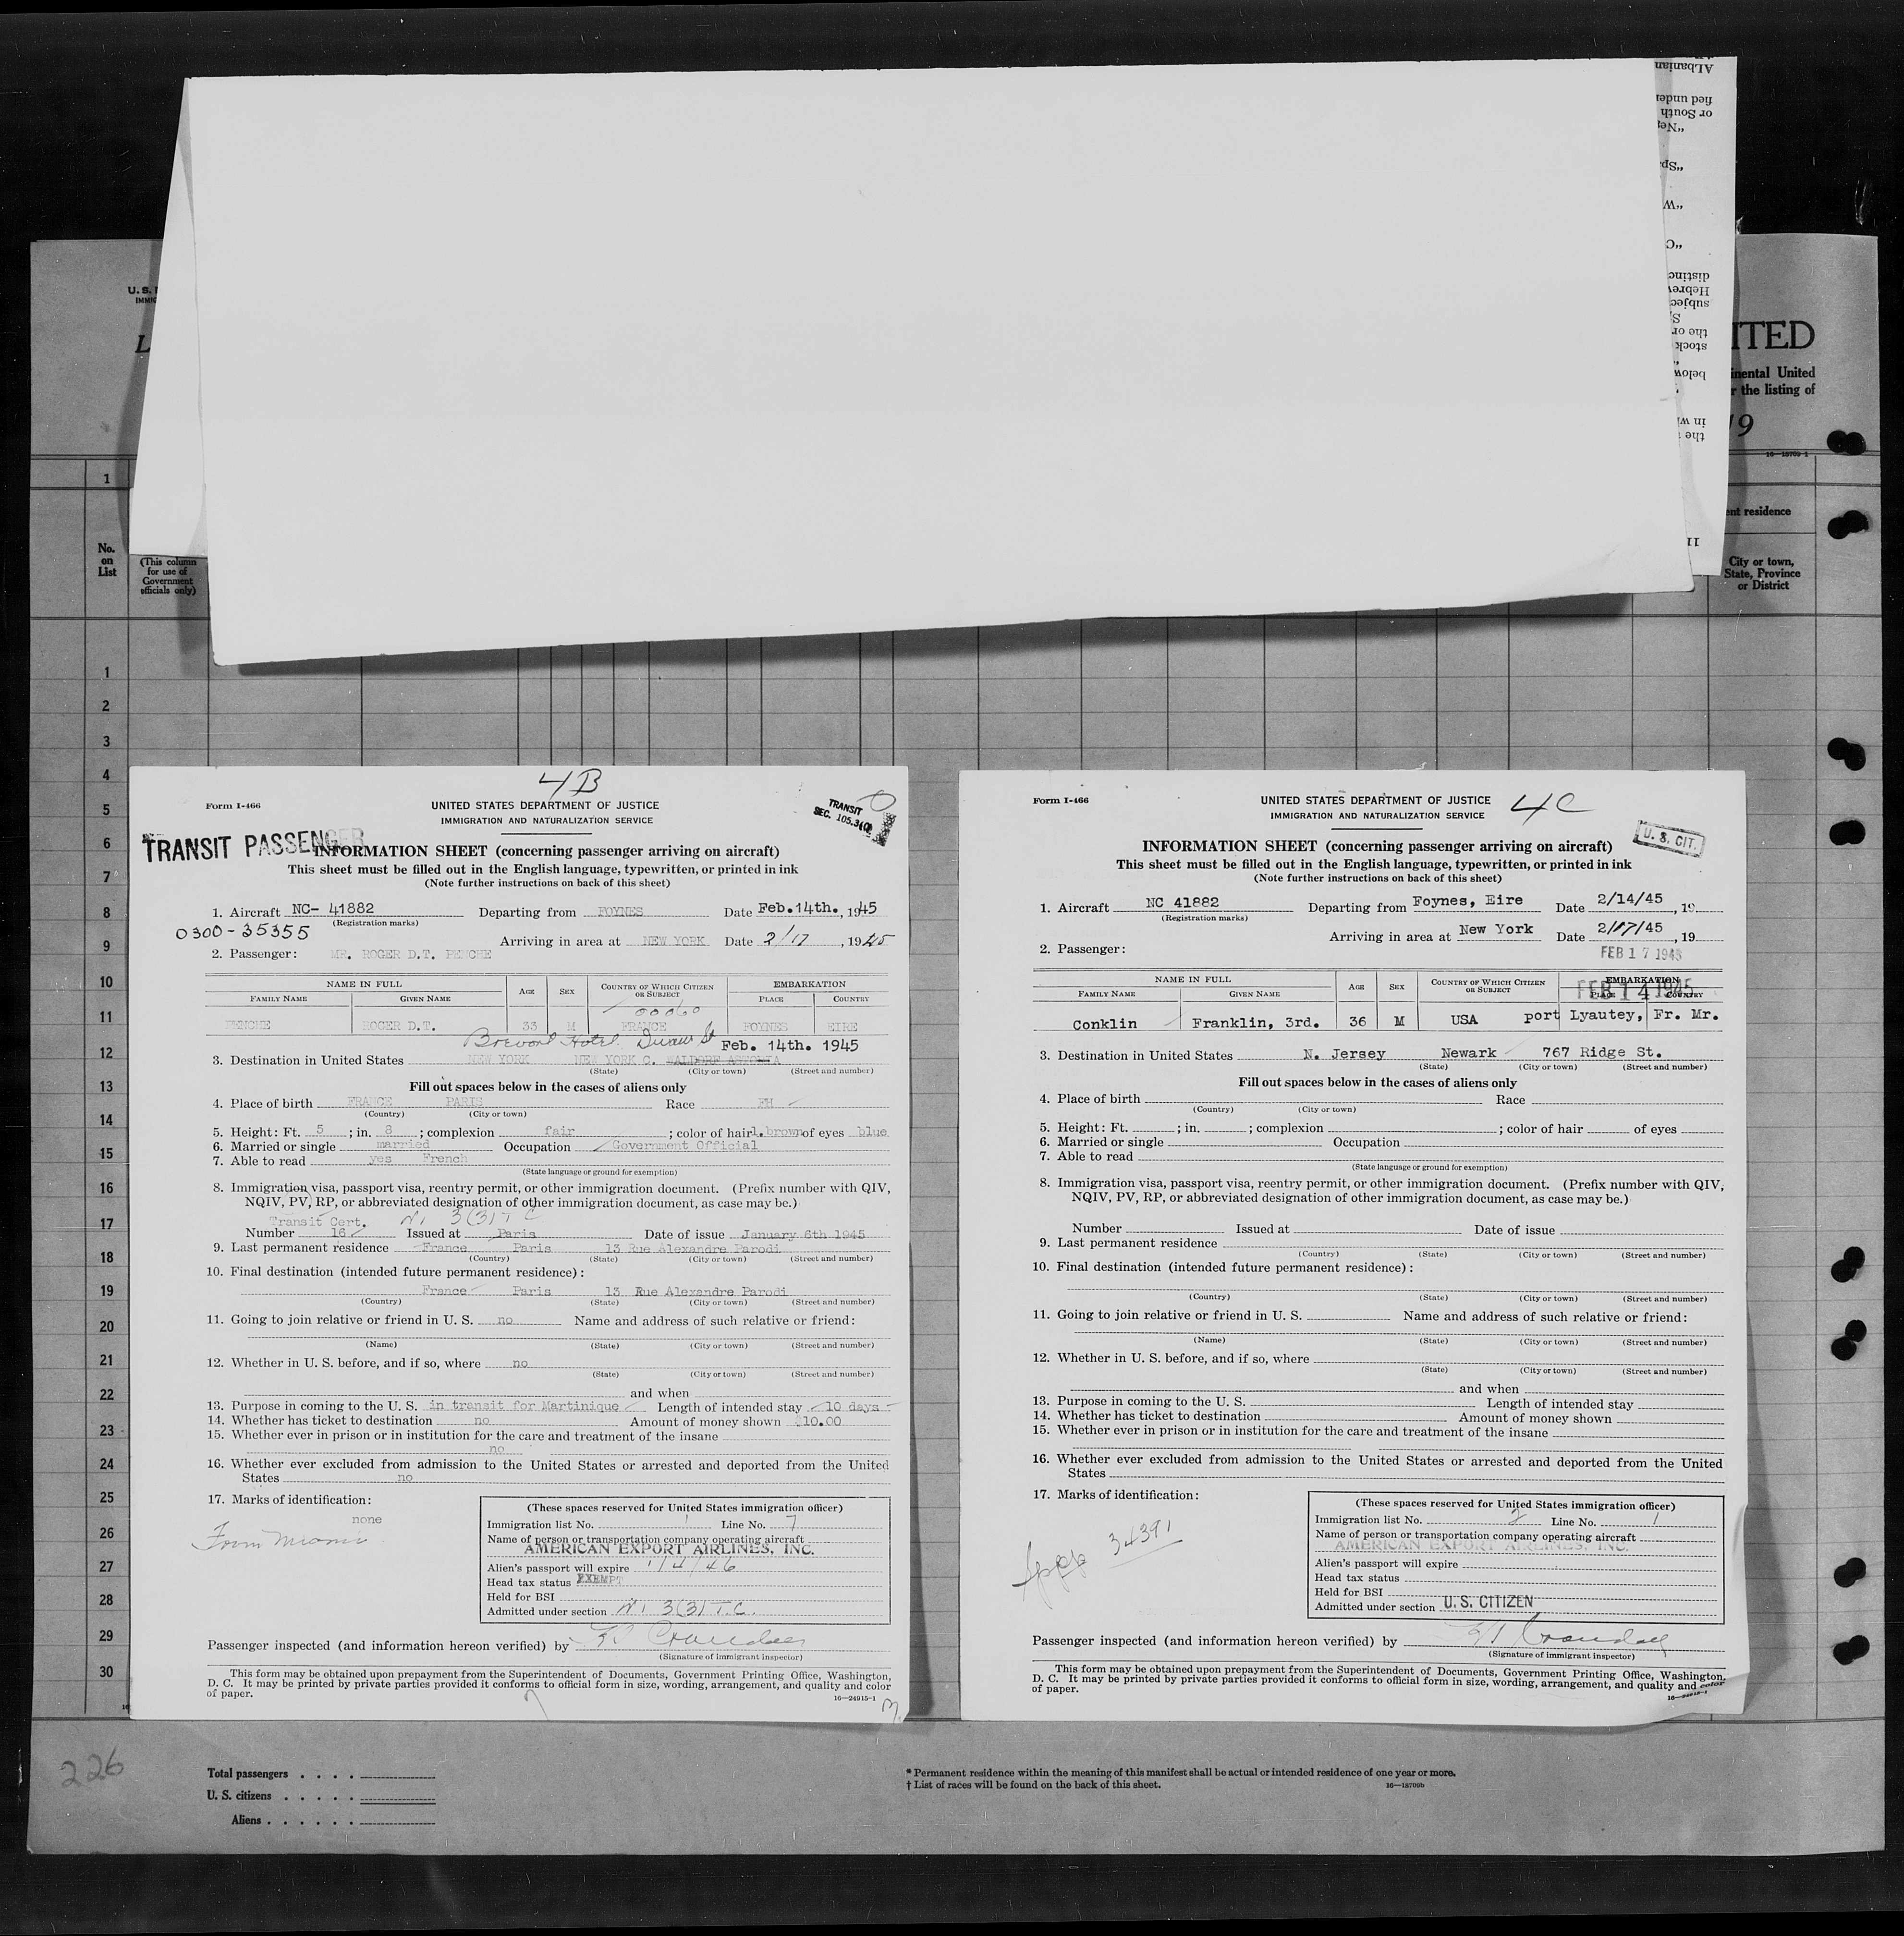 ALbanian
fied under
or South
"Neg
"Spa
"W
"C
distinc
Hebrew
subjec
S
the or
stock
below
in w
the
II
U. S.
IMMIG
L
ITED
inental United
r the listing of
19
16—18709-1
1
ent residence
No.
on
List
(This column
for use of
Government
officials only)
City or town,
State, Province
or District
1
2
3
4
5
6
7
8
9
10
11
12
13
14
15
16
17
18
19
20
21
22
23
24
25
26
27
28
29
30
4B
Form I-466
UNITED STATES DEPARTMENT OF JUSTICE
IMMIGRATION AND NATURALIZATION SERVICE
TRANSIT
SEC. 105.3(Q)
TRANSIT PASSENGER
INFORMATION SHEET (concerning passenger arriving on aircraft)
This sheet must be filled out in the English language, typewritten, or printed in ink
(Note further instructions on back of this sheet)
1. Aircraft NC- 41882 Departing from FOYNES Date Feb.14th., 1945
(Registration marks)
0300-35355
Arriving in area at NEW YORK Date 2/17, 1945
2. Passenger: MR. ROGER D.T. PENCHE
NAME IN FULL AGE SEX COUNTRY OF WHICH CITIZEN OR SUBJECT EMBARKATION
FAMILY NAME GIVEN NAME PLACE COUNTRY
00060
PENCHE ROGER D.T. 33 M FRANCE FOYNES EIRE
Brevort Hotel Feb. 14th. 1945
3. Destination in United States NEW YORK NEW YORK C. WALDORF ASTORIA
(State) (City or town) (Street and number)
Fill out spaces below in the cases of aliens only
4. Place of birth FRANCE PARIS Race FH
(Country) (City or town)
5. Height: Ft. 5; in. 8; complexion fair; color of hair l.brown of eyes blue
6. Married or single married Occupation Government Official
7. Able to read yes French
(State language or ground for exemption)
8. Immigration visa, passport visa, reentry permit, or other immigration document. (Prefix number with QIV,
NQIV, PV, RP, or abbreviated designation of other immigration document, as case may be.)
Transit Cert. 3(3) T C
Number 16 Issued at Paris Date of issue January 6th 1945
9. Last permanent residence France Paris 13 Rue Alexandre Parodi
(Country) (State) (City or town) (Street and number)
10. Final destination (intended future permanent residence):
France Paris 13 Rue Alexandre Parodi
(Country) (State) (City or town) (Street and number)
11. Going to join relative or friend in U. S. no Name and address of such relative or friend:
(Name) (State) (City or town) (Street and number)
12. Whether in U. S. before, and if so, where no
(State) (City or town) (Street and number)
and when
13. Purpose in coming to the U. S. in transit for Martinique Length of intended stay 10 days
14. Whether has ticket to destination no Amount of money shown $10.00
15. Whether ever in prison or in institution for the care and treatment of the insane
no
16. Whether ever excluded from admission to the United States or arrested and deported from the United
States no
17. Marks of identification:
none
From Miami
(These spaces reserved for United States immigration officer)
Immigration list No. 1 Line No. 7
Name of person or transportation company operating aircraft
AMERICAN EXPORT AIRLINES, INC.
Alien's passport will expire 1/4/46
Head tax status EXEMPT
Held for BSI
Admitted under section 3(3) T.C.
Passenger inspected (and information hereon verified) by
(Signature of immigrant inspector)
This form may be obtained upon prepayment from the Superintendent of Documents, Government Printing Office, Washington,
D. C. It may be printed by private parties provided it conforms to official form in size, wording, arrangement, and quality and color
of paper.
16—24915-1
4C
Form I-466
UNITED STATES DEPARTMENT OF JUSTICE
IMMIGRATION AND NATURALIZATION SERVICE
U. S. CIT.
INFORMATION SHEET (concerning passenger arriving on aircraft)
This sheet must be filled out in the English language, typewritten, or printed in ink
(Note further instructions on back of this sheet)
1. Aircraft NC 41882 Departing from Foynes, Eire Date 2/14/45, 19
(Registration marks)
Arriving in area at New York Date 2/17/45, 19
2. Passenger: FEB 17 1945
NAME IN FULL AGE SEX COUNTRY OF WHICH CITIZEN OR SUBJECT EMBARKATION
FAMILY NAME GIVEN NAME PLACE COUNTRY
FEB 14 1945
Conklin Franklin, 3rd. 36 M USA port Lyautey, Fr. Mr.
3. Destination in United States N. Jersey Newark 767 Ridge St.
(State) (City or town) (Street and number)
Fill out spaces below in the cases of aliens only
4. Place of birth Race
(Country) (City or town)
5. Height: Ft. ; in. ; complexion ; color of hair of eyes
6. Married or single Occupation
7. Able to read
(State language or ground for exemption)
8. Immigration visa, passport visa, reentry permit, or other immigration document. (Prefix number with QIV,
NQIV, PV, RP, or abbreviated designation of other immigration document, as case may be.)
Number Issued at Date of issue
9. Last permanent residence
(Country) (State) (City or town) (Street and number)
10. Final destination (intended future permanent residence):
(Country) (State) (City or town) (Street and number)
11. Going to join relative or friend in U. S. Name and address of such relative or friend:
(Name) (State) (City or town) (Street and number)
12. Whether in U. S. before, and if so, where
(State) (City or town) (Street and number)
and when
13. Purpose in coming to the U. S. Length of intended stay
14. Whether has ticket to destination Amount of money shown
15. Whether ever in prison or in institution for the care and treatment of the insane
16. Whether ever excluded from admission to the United States or arrested and deported from the United
States
17. Marks of identification:
34391
(These spaces reserved for United States immigration officer)
Immigration list No. 2 Line No. 1
Name of person or transportation company operating aircraft
AMERICAN EXPORT AIRLINES, INC.
Alien's passport will expire
Head tax status
Held for BSI
Admitted under section U. S. CITIZEN
Passenger inspected (and information hereon verified) by
(Signature of immigrant inspector)
This form may be obtained upon prepayment from the Superintendent of Documents, Government Printing Office, Washington,
D. C. It may be printed by private parties provided it conforms to official form in size, wording, arrangement, and quality and color
of paper.
16—24915-1
226
Total passengers . . . .
U. S. citizens . . . . .
Aliens . . . . . .
* Permanent residence within the meaning of this manifest shall be actual or intended residence of one year or more.
† List of races will be found on the back of this sheet.
16—18709b